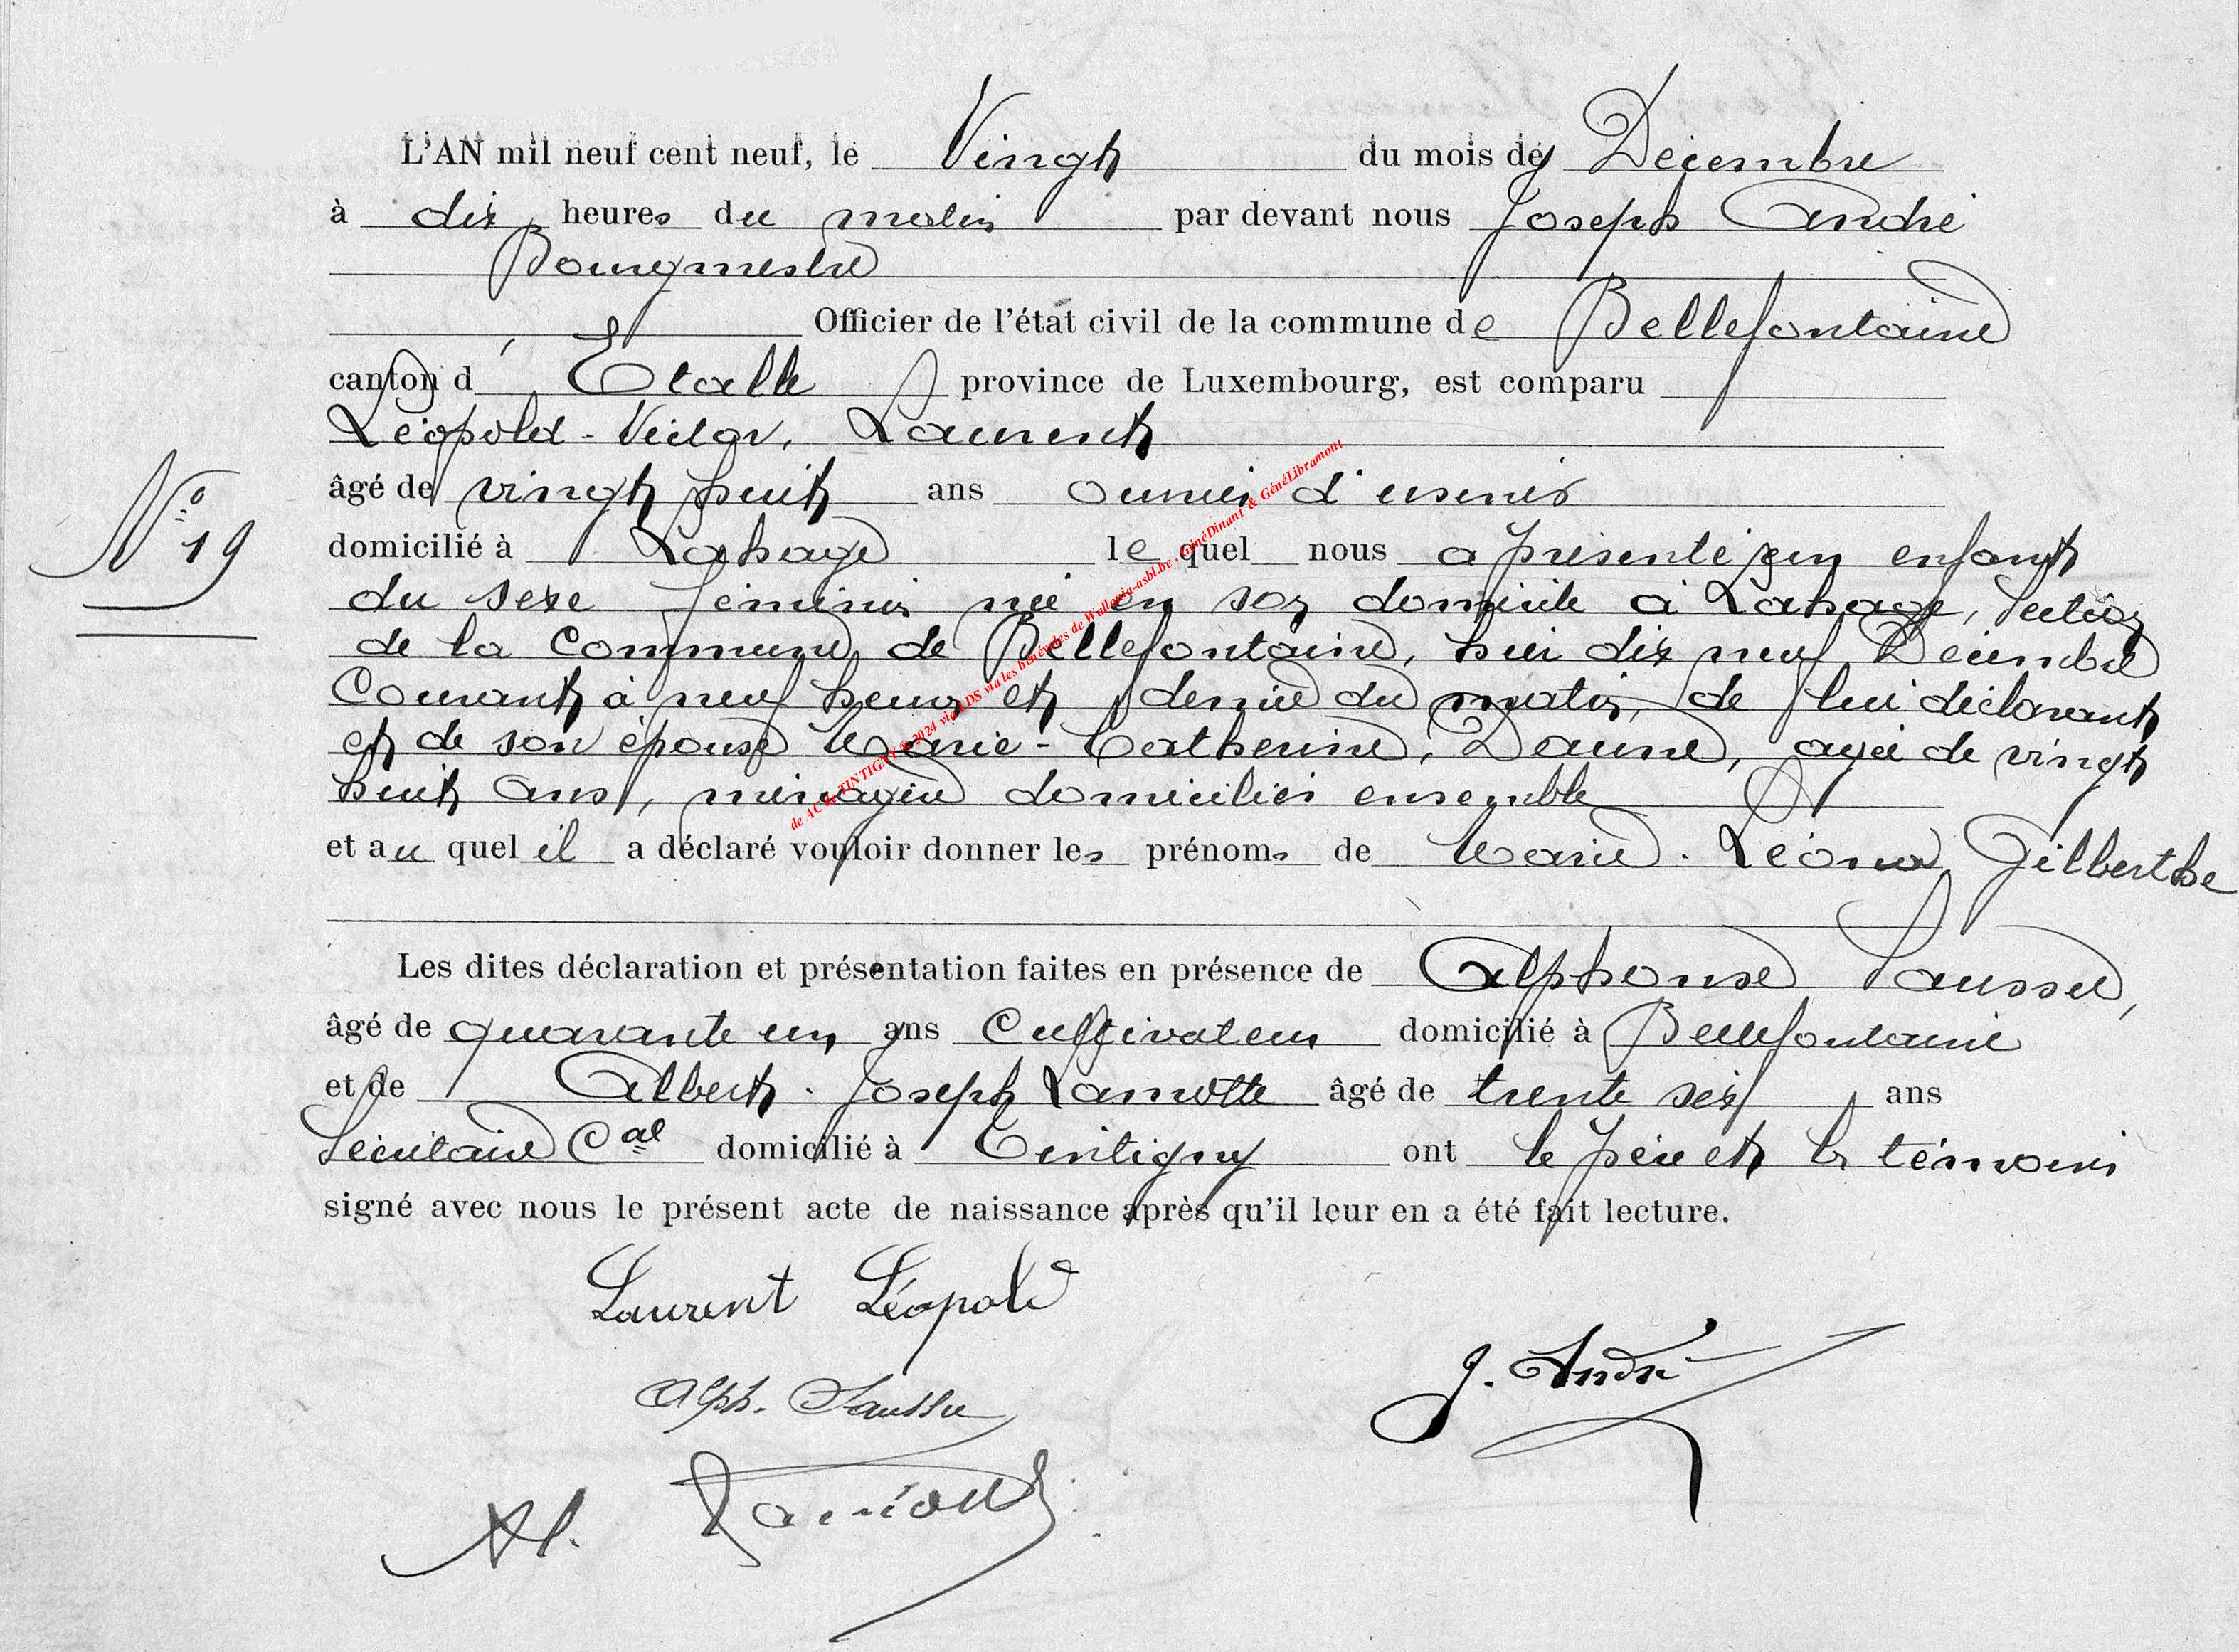 L'AN mil neuf cent neuf, le Vingt du mois de Décembre
à dix heures du matin par devant nous Joseph André
Bourgmestre
Officier de l'état civil de la commune de Bellefontaine
canton d Etalle province de Luxembourg, est comparu
Léopold-Victor, Laurent
âgé de vingt huit ans ouvrier d'usines
N° 19
domicilié à Lahage lequel nous a présenté un enfant
du sexe féminin née en son domicile à Lahage, Section
de la Commune de Bellefontaine, hier dix neuf Décembre
Courant à neuf heures et demie du matin, de lui déclarant
et de son épouse Marie-Catherine, Daune, agée de vingt
huit ans, ménagère domiciliés ensemble
et au quel il a déclaré vouloir donner les prénoms de Marie. Léona Gilberthe
Les dites déclaration et présentation faites en présence de Alphonse Saussu,
âgé de quarante un ans Cultivateur domicilié à Bellefontaine
et de Albert. Joseph Lamotte âgé de trente six ans
Secrétaire Cal domicilié à Tintigny ont le père et les témoins
signé avec nous le présent acte de naissance après qu'il leur en a été fait lecture.
Laurent Léopold
J. André
Alph. Saussu
Al. Lamotte
de AC de TINTIGNY © 2024 via LDS via les bénévoles de Wallonia-asbl.be , GénéDinant & GénéLibramont